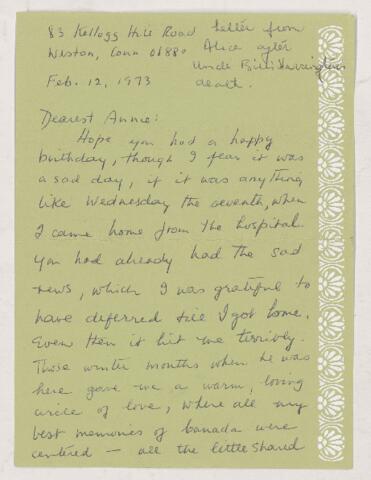 83 Kellogg Hill Road letter from
Weston, Conn 06880 Alice after
Uncle Bill Harrington's
Feb. 12, 1973 death.
Dearest Annie:
Hope you had a happy
birthday, though I fear it was
a sad day, if it was anything
like Wednesday the seventh, when
I came home from the hospital.
You had already had the sad
news, which I was grateful to
have deferred till I got home.
Even then it hit me terribly.
Those winter months when he was
here gave me a warm, loving
circle of love, where all my
best memories of Canada were
centered — all the little shared